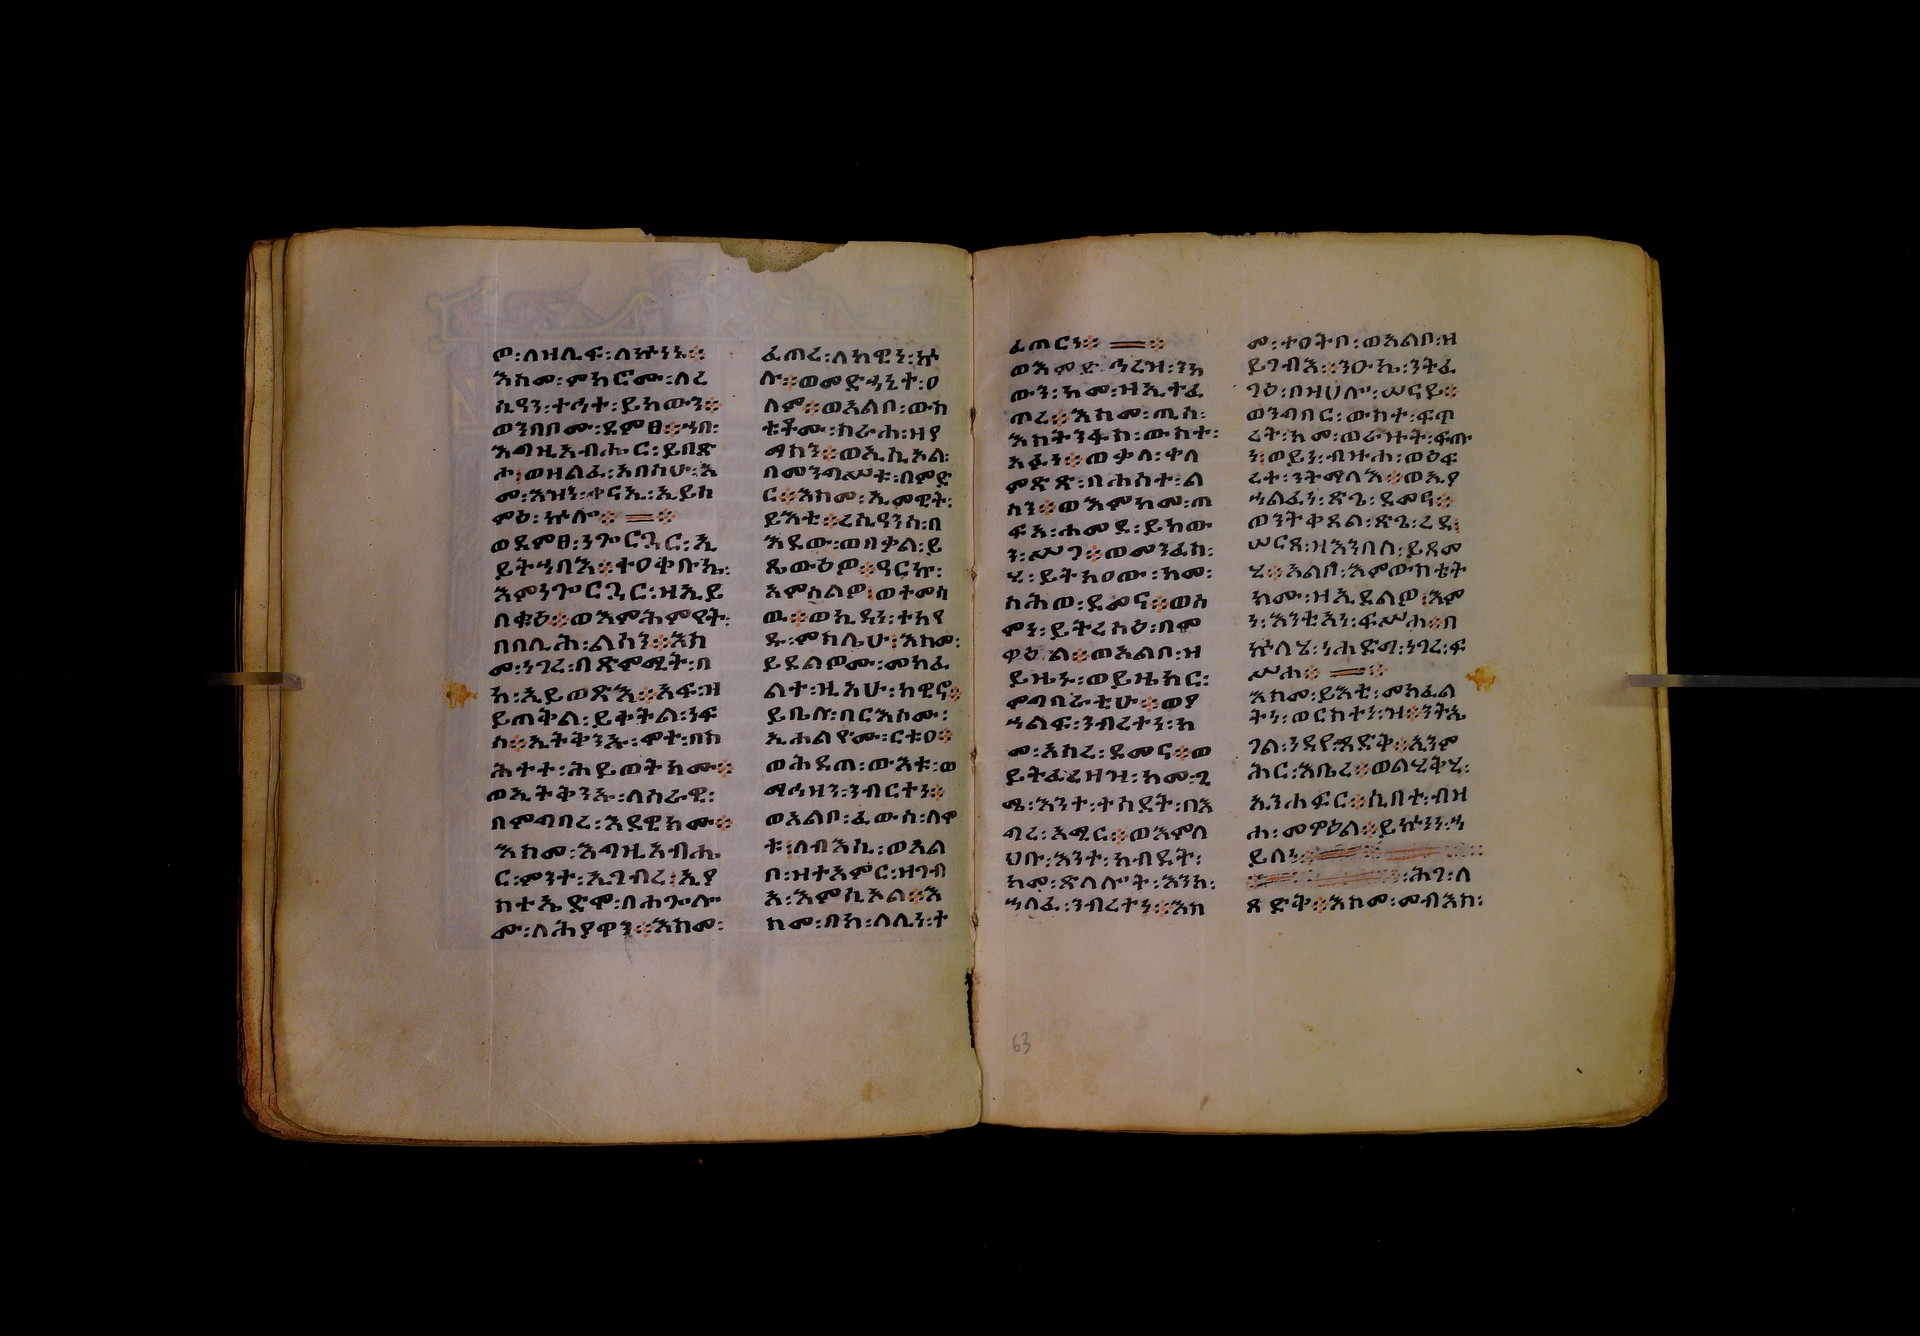 ዎ፡ለዝሊፍ፡ለኵነኔ።
እስመ፡ምክሮሙ፡ለረ
ሲዓን፡ተሓተ፡ይከውን።
ወንባቦሙ፡ደምፀ።ኀበ፡
እግዚአብሔር፡ይበጽ
ሕ፤ወዘልፈ፡አበሳሁ፡እ
መ፡እዝነ፡ቀናኢ፡ኢይሰ
ምዕ፡ኵሎ።
ወደምፀ፡ንጐርጓር፡ኢ
ይትኀባእ።ተዐቀቡኬ፡
እምንጐርጓር፡ዘኢይ
በቁዕ።ወእምሕምየት፡
በበሊሕ፡ልሳን።እስ
መ፡ነገረ፡በጽምሚት፡በ
ከ፡ኢይወጽእ።አፍ፡ዘ
ይጠቅል፡ይቀትል፡ነፍ
ሰ።ኢትቅንኡ፡ሞተ፡በስ
ሕተተ፡ሕይወትክሙ።
ወኢትቅንኡ፡ለሰራዊ፡
በምግባረ፡እደዊክሙ።
እስመ፡እግዚአብሔ
ር፡ምንተ፡ኢገብረ፤ኢያ
በሐጐሎ
ሙ፡ለሕያዋን።እስመ፡
ፈጠረ፡ለከዊን፡ኵ
ሎ።ወመድኃኒተ፡ዐ
ለም።ወአልቦ፡ውስ
ቴቶሙ፡ሥራሐ፡ዘያ
ማስን።ወኢሲኦል፡
በመንግሥቱ፡በምድ
ር።እስመ፡ኢመዊት፡
ይእቲ።ረሲዓንሰ፡በ
እደው፡ወበቃል፡ይ
ጼውዕዎ።ዓርከ፡
አምሰልዎ፤ወተመስ
ዉ።ወኪዳነ፡ተካየ
ዱ፡ምስሌሁ፤እስመ፡
ይደልዎሙ፡መክፈ
ልተ፡ዚአሁ፡ከዊኖ።
ይቤሉ፡በርእሶሙ፡
ኢሐልየሙ፡ርቱዐ።
ወሕዳጠ፡ውእቱ፡ወ
ማሕዘን፡ንብረትነ።
ወአልቦ፡ፈውስ፡ለሞ
ቱ፤ለብእሲ፡ወአል
ቦ፡ዘተአምር፡ዘገብ
አ፡እምሲኦል።እ
ስመ፡በከ፡ለሊነ፡ተ
ፈጠርነ።
ወእምድኅረዝ፡ንከ
ውን፡ከመ፡ዘኢተፈ
ጠረ።እስመ፡ጢስ፡
እስትንፋስ፡ውስተ፡
አፉነ።ወቃለ፡ቀለ
ምጽጽ፡በሐሰተ፡ል
ብነ።ወእምከመ፡ጠ
ፍአ፡ሐመደ፡ይከው
ን፡ሥጋ።ወመንፈስ፡
ኒ፡ይትከዐው፡ከመ፡
ስሕወ፡ደመና።ወስ
ምነ፡ይትረሳዕ፡በመ
ዋዕል።ወአልቦ፡ዘ
ይዜኑ፡ወይዜከር፡
ምግባራቲሁ።ወያ
ኀልፍ፡ንብረትነ፡ከ
መ፡አሰረ፡ደመና።ወ
ይትፈረዘዝ፡ከመ፡ጊ
ሜ፡እንተ፡ተሰደት፡በእ
ግረ፡አሚር።ወእምላ
ህቡ፡እንተ፡ከብደት፡
ከመ፡ጽላሎት፡እንከ፡
ኀለፈ፡ንብረትነ።እስ
መ፡ተዐትቦ፡ወአልቦ፡ዘ
ይገብእ።ንዑኬ፡ንትፈ
ጋዕ፡በዘሀሎ፡ሠናይ።
ወንግበር፡ውስተ፡ፍጥ
ረት፡ከመ፡ወራዙት፡ፍጡ
ነ፤ወይነ፡ብዙሐ፡ወዕፍ
ረተ፡ንትማላእ።ወኢያ
ኀልፈነ፡ጽጌ፡ደመና።
ወንትቀጸል፡ጽጌ፡ረዳ፤
ሠርጸ፡ዘእንበለ፡ይጸመ
ሂ።አልቦ፡እምውስቴት
ክሙ፡ዘኢደልዎ፤እም
ነ፡እንቲአነ፡ፍሥሐ።በ
ኵለሄ፡ነሐድግ፡ነገረ፡ፍ
ሥሐ።
እስመ፡ይእቲ፡መክፈል
ትነ፡ወርስተነ፡ዝ።ንትኤ
ገል፡ነዳየ፡ጻድቅ።ኢንም
ሐር፡እቤረ።ወልሂቅሂ፡
ኢንሐፍር።ሲበተ፡ብዙ
ሐ፡መዋዕል።ይኵነነ፡ኀ
ይለነ፡
ሕገ፡ለ
ጸድቅ።እስመ፡መብእስ፡
63